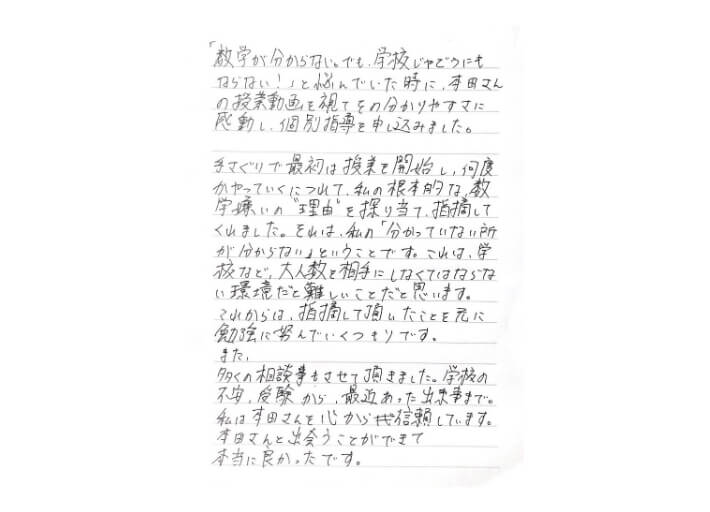 「数学が分からない。でも、学校じゃどうにも
ならない！」と悩んでいた時に、本田さん
の授業動画を視てその分かりやすさに
感動し、個別指導を申し込みました。
手さぐりで最初は授業を開始し、何度
かやっていくにつれて、私の根本的な、数
学嫌いの"理由"を探り当て、指摘して
くれました。それは、私の「分かっていない所
が分からない」ということです。これは、学
校など、大人数を相手にしなくてはならな
い環境だと難しいことだと思います。
これからは、指摘して頂いたことを元に
勉強に努んでいくつもりです。
また、
多くの相談事もさせて頂きました。学校の
不安、受験から、最近あった出来事まで。
私は本田さんを心から信頼しています。
本田さんと出会うことができて
本当に良かったです。